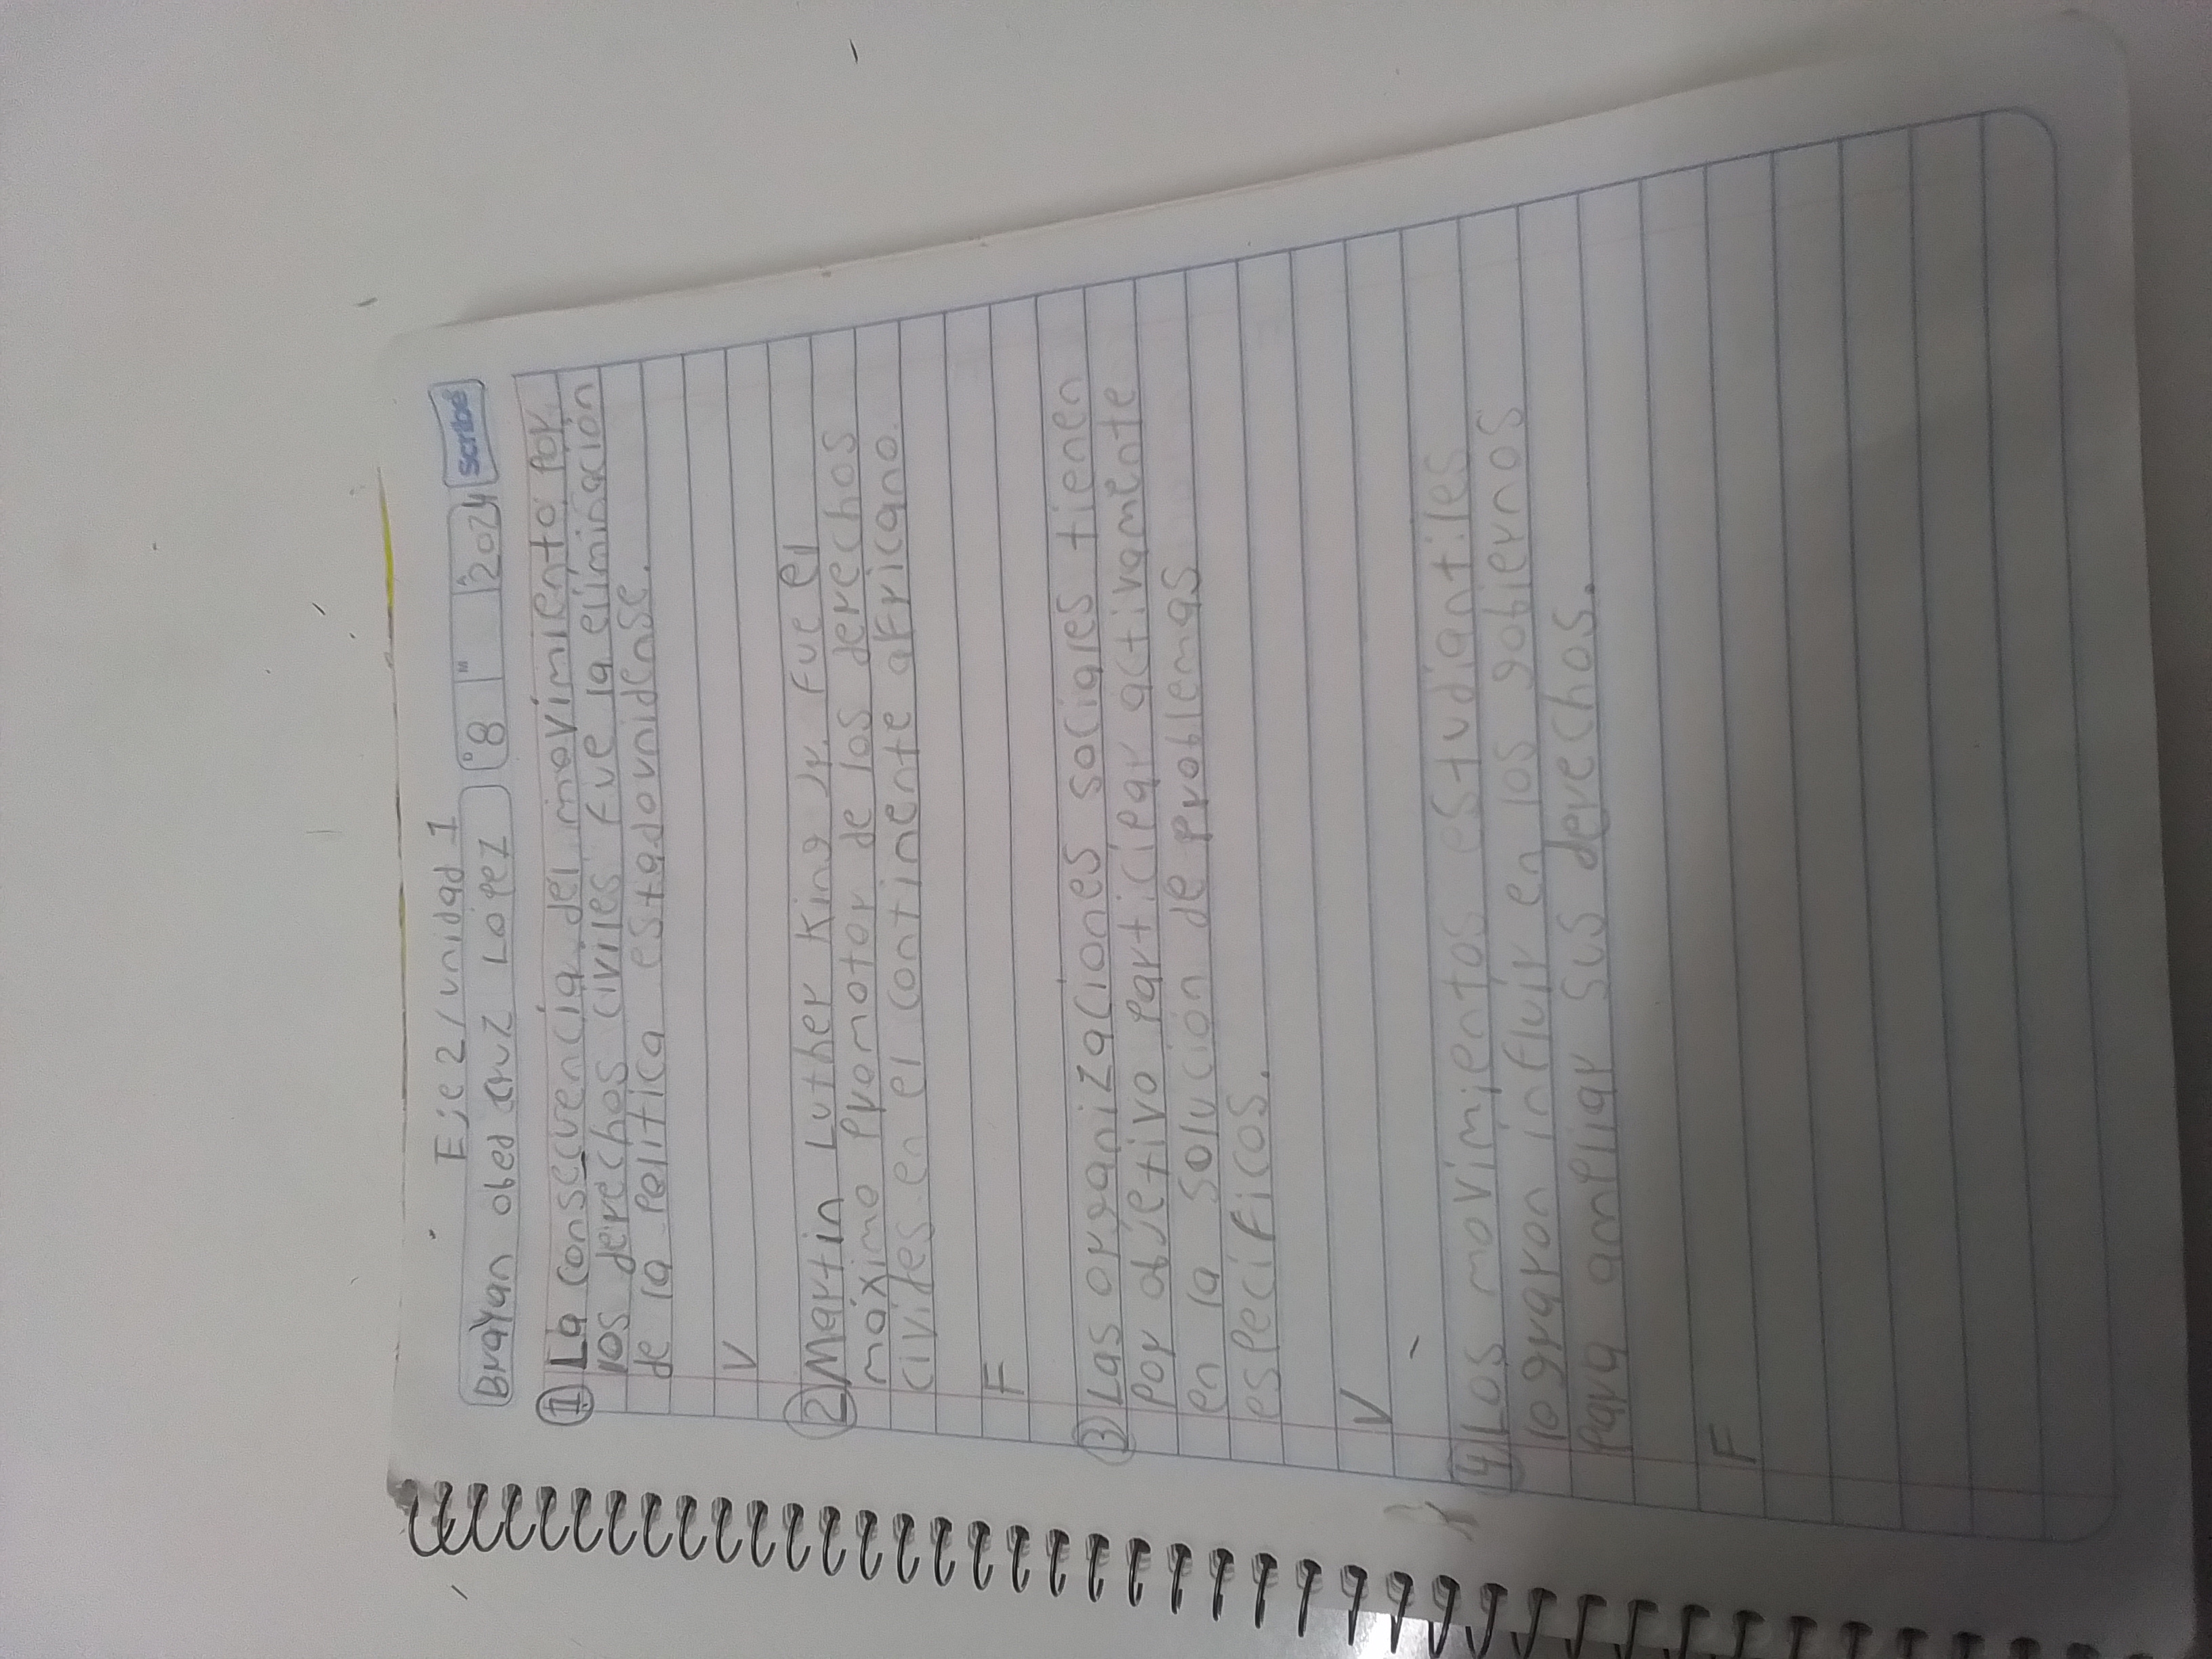 Eje 2 / unidad 1
Brayan obed cruz López 8 2024 scribe
① La consecuencia del movimiento por
los derechos civiles fue la eliminación
de la política estadounidense.
V
② Martin Luther King Jr. Fue el
máximo Promotor de los derechos
civiles en el continente africano.
F
③ Las organizaciones sociales tienen
por objetivo participar activamente
en la solución de problemas
específicos.
V
④ Los movimientos estudiantiles
lograron influir en los gobiernos
Para ampliar sus derechos.
F